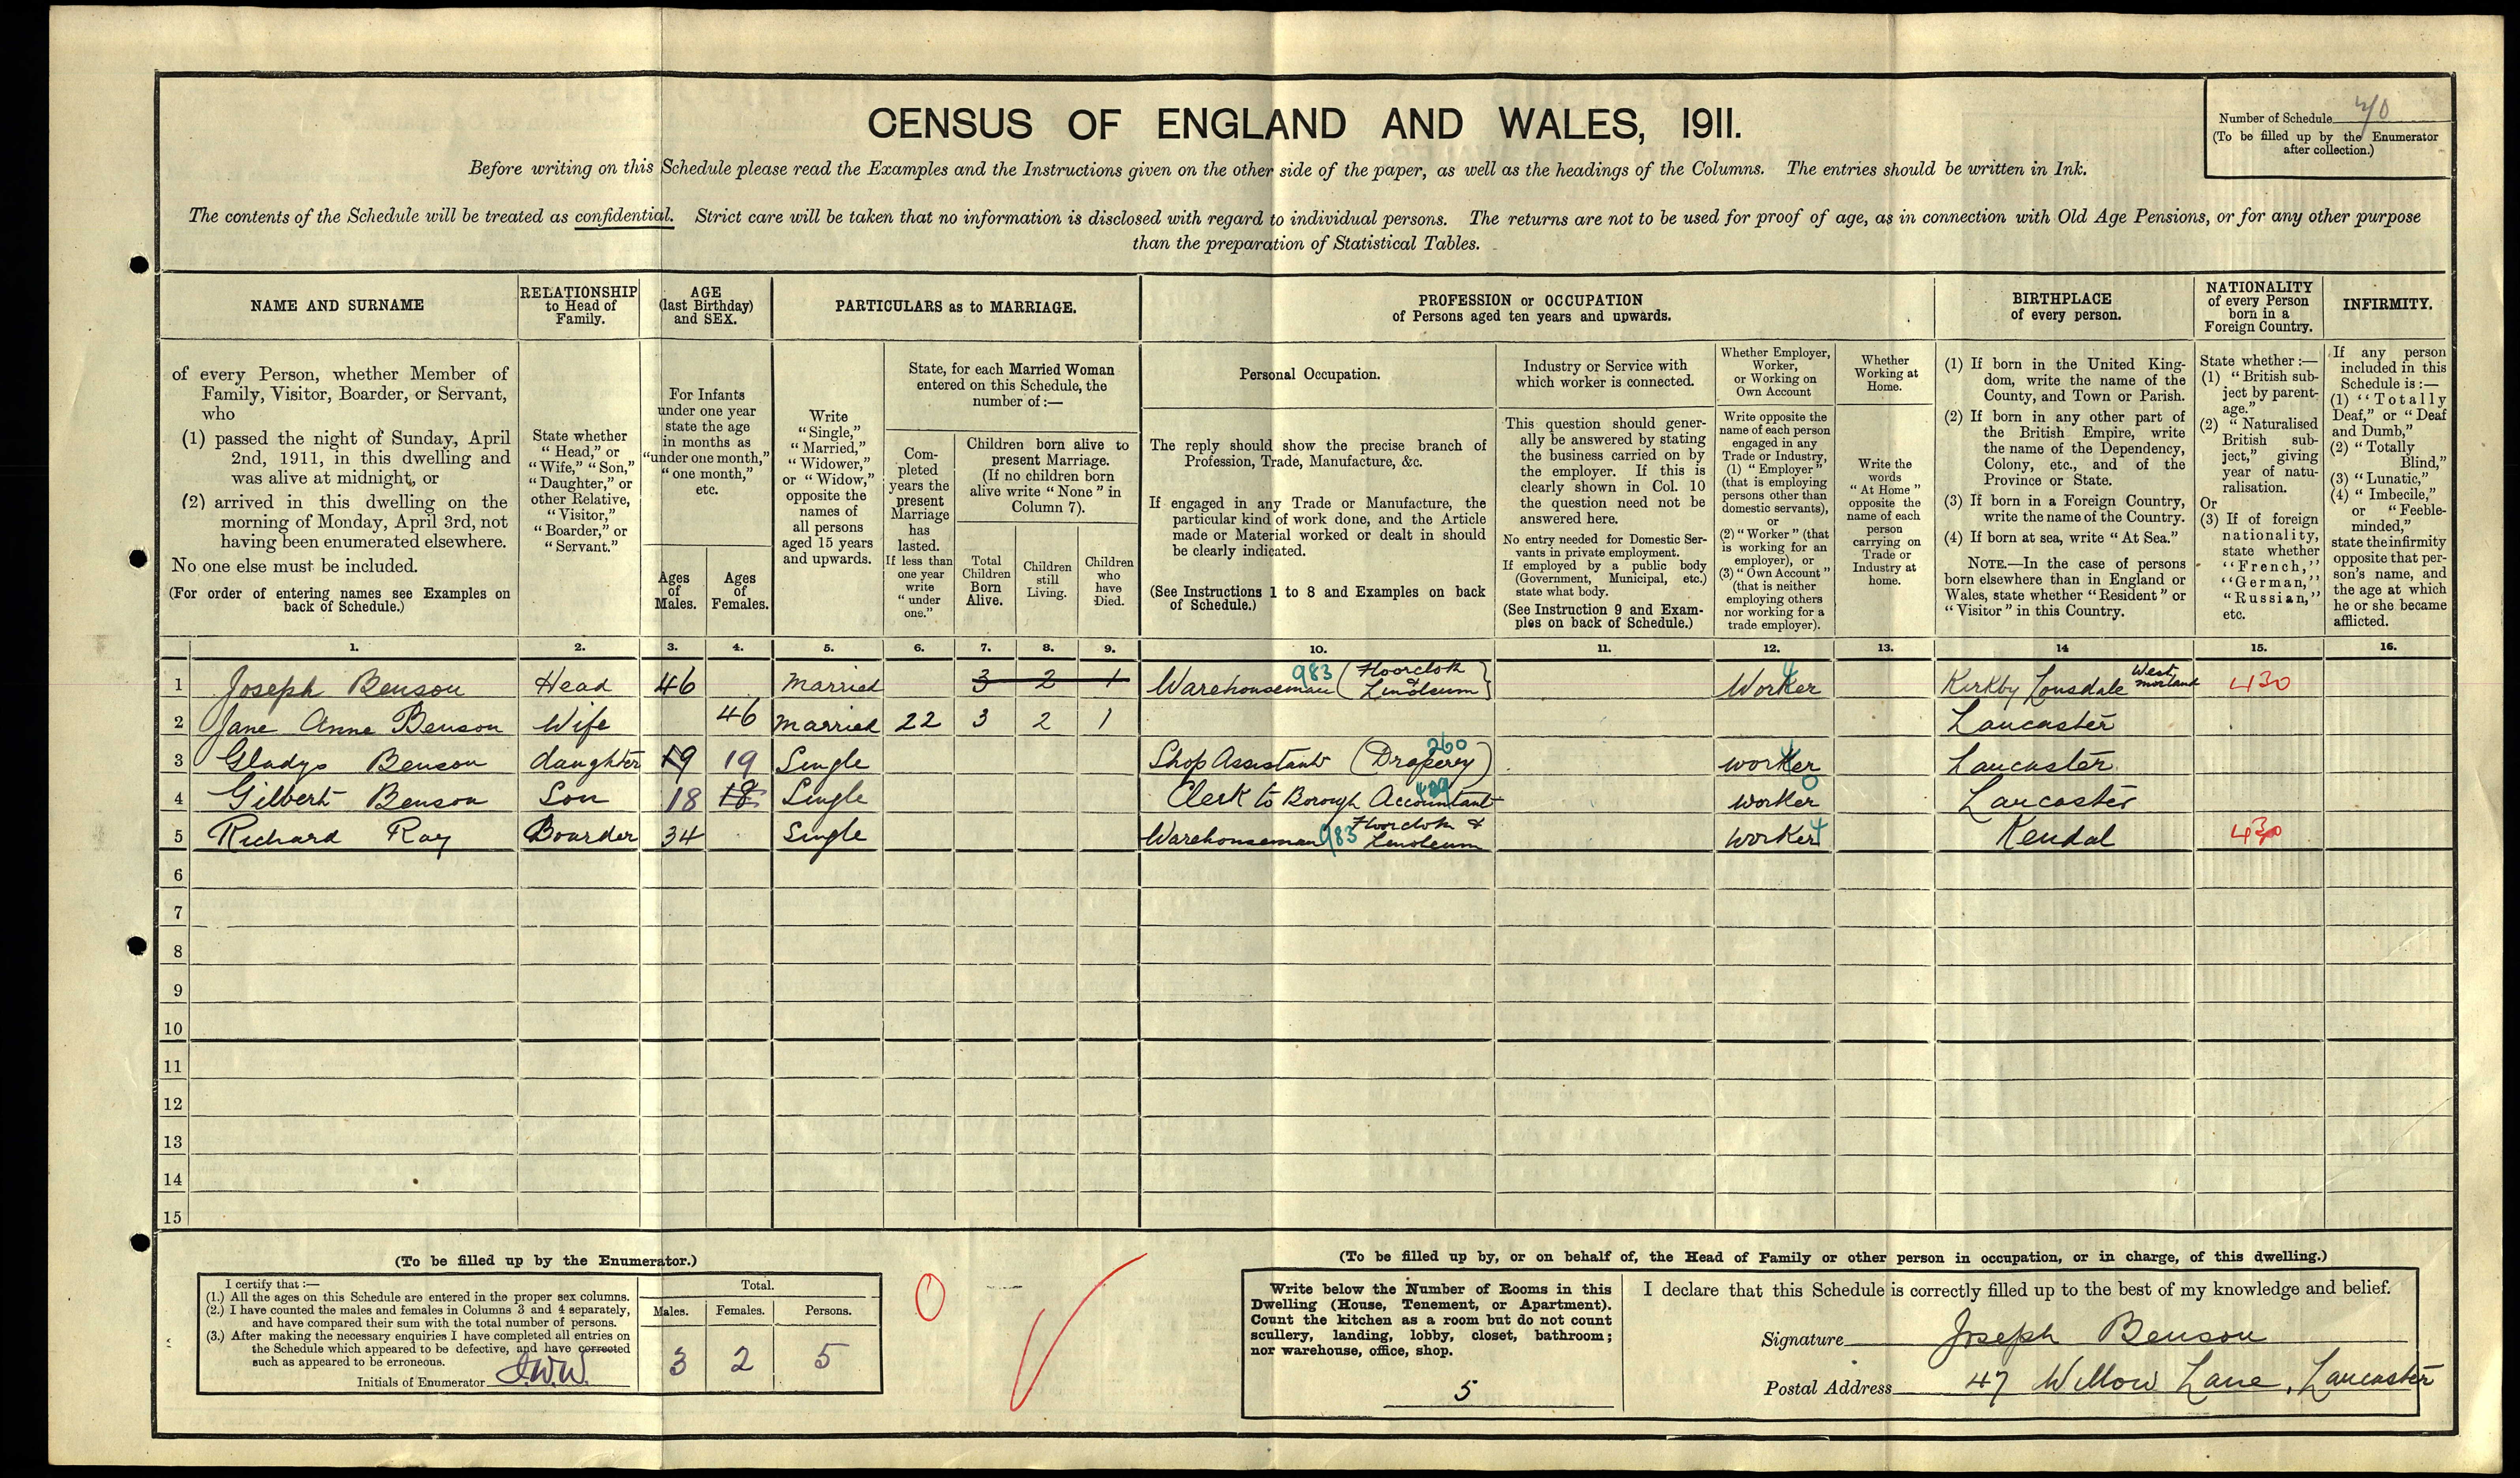 CENSUS OF ENGLAND AND WALES, 1911.
Number of Schedule 40
(To be filled up by the Enumerator
after collection.)
Before writing on this Schedule please read the Examples and the Instructions given on the other side of the paper, as well as the headings of the Columns. The entries should be written in Ink.
The contents of the Schedule will be treated as confidential. Strict care will be taken that no information is disclosed with regard to individual persons. The returns are not to be used for proof of age, as in connection with Old Age Pensions, or for any other purpose
than the preparation of Statistical Tables.
NAME AND SURNAME
of every Person, whether Member of
Family, Visitor, Boarder, or Servant,
who
(1) passed the night of Sunday, April
2nd, 1911, in this dwelling and
was alive at midnight, or
(2) arrived in this dwelling on the
morning of Monday, April 3rd, not
having been enumerated elsewhere.
No one else must be included.
(For order of entering names see Examples on
back of Schedule.)
RELATIONSHIP
to Head of
Family.
State whether
"Head," or
"Wife," "Son,"
"Daughter," or
other Relative,
"Visitor,"
"Boarder," or
"Servant."
AGE
(last Birthday)
and SEX.
For Infants
under one year
state the age
in months as
"under one month,"
"one month,"
etc.
Ages
of
Males.
Ages
of
Females.
PARTICULARS as to MARRIAGE.
Write
"Single,"
"Married,"
"Widower,"
or "Widow,"
opposite the
names of
all persons
aged 15 years
and upwards.
State, for each Married Woman
entered on this Schedule, the
number of:—
Com-
pleted
years the
present
Marriage
has
lasted.
If less than
one year
write
"under
one."
Children born alive to
present Marriage.
(If no children born
alive write "None" in
Column 7).
Total
Children
Born
Alive.
Children
still
Living.
Children
who
have
Died.
PROFESSION or OCCUPATION
of Persons aged ten years and upwards.
Personal Occupation.
The reply should show the precise branch of
Profession, Trade, Manufacture, &c.
If engaged in any Trade or Manufacture, the
particular kind of work done, and the Article
made or Material worked or dealt in should
be clearly indicated.
(See Instructions 1 to 8 and Examples on back
of Schedule.)
Industry or Service with
which worker is connected.
This question should gener-
ally be answered by stating
the business carried on by
the employer. If this is
clearly shown in Col. 10
the question need not be
answered here.
No entry needed for Domestic Ser-
vants in private employment.
If employed by a public body
(Government, Municipal, etc.)
state what body.
(See Instruction 9 and Exam-
ples on back of Schedule.)
Whether Employer,
Worker,
or Working on
Own Account
Write opposite the
name of each person
engaged in any
Trade or Industry,
(1) "Employer"
(that is employing
persons other than
domestic servants),
or
(2) "Worker" (that
is working for an
employer), or
(3) "Own Account"
(that is neither
employing others
nor working for a
trade employer).
Whether
Working at
Home.
Write the
words
"At Home"
opposite the
name of each
person
carrying on
Trade or
Industry at
home.
BIRTHPLACE
of every person.
(1) If born in the United King-
dom, write the name of the
County, and Town or Parish.
(2) If born in any other part of
the British Empire, write
the name of the Dependency,
Colony, etc., and of the
Province or State.
(3) If born in a Foreign Country,
write the name of the Country.
(4) If born at sea, write "At Sea."
NOTE.—In the case of persons
born elsewhere than in England or
Wales, state whether "Resident" or
"Visitor" in this Country.
NATIONALITY
of every Person
born in a
Foreign Country.
State whether:—
(1) "British sub-
ject by parent-
age."
(2) "Naturalised
British sub-
ject," giving
year of natu-
ralisation.
Or
(3) If of foreign
nationality,
state whether
"French,"
"German,"
"Russian,"
etc.
INFIRMITY.
If any person
included in this
Schedule is:—
(1) "Totally
Deaf," or "Deaf
and Dumb,"
(2) "Totally
Blind,"
(3) "Lunatic,"
(4) "Imbecile,"
or "Feeble-
minded,"
state the infirmity
opposite that per-
son's name, and
the age at which
he or she became
afflicted.
1. 2. 3. 4. 5. 6. 7. 8. 9. 10. 11. 12. 13. 14 15. 16.
1 Joseph Benson Head 46 Married 3 2 1 Warehouseman 983 (Floorcloth & Linoleum) Worker 4 Kirkby Lonsdale Westmorland 430
2 Jane Anne Benson Wife 46 Married 22 3 2 1 Lancaster
3 Gladys Benson daughter 19 19 Single Shop Assistant (Drapery) 260 worker 4 Lancaster
4 Gilbert Benson Son 18 18 Single Clerk to Borough Accountant worker 0 Lancaster
5 Richard Ray Boarder 34 Single Warehouseman 983 Floorcloth & Linoleum worker 4 Kendal 430
6
7
8
9
10
11
12
13
14
15
(To be filled up by the Enumerator.)
I certify that:—
(1.) All the ages on this Schedule are entered in the proper sex columns.
(2.) I have counted the males and females in Columns 3 and 4 separately,
and have compared their sum with the total number of persons.
(3.) After making the necessary enquiries I have completed all entries on
the Schedule which appeared to be defective, and have corrected
such as appeared to be erroneous.
Initials of Enumerator J.W.W.
Total.
Males. Females. Persons.
3 2 5
0
(To be filled up by, or on behalf of, the Head of Family or other person in occupation, or in charge, of this dwelling.)
Write below the Number of Rooms in this
Dwelling (House, Tenement, or Apartment).
Count the kitchen as a room but do not count
scullery, landing, lobby, closet, bathroom;
nor warehouse, office, shop.
5
I declare that this Schedule is correctly filled up to the best of my knowledge and belief.
Signature Joseph Benson
Postal Address 47 Willow Lane, Lancaster